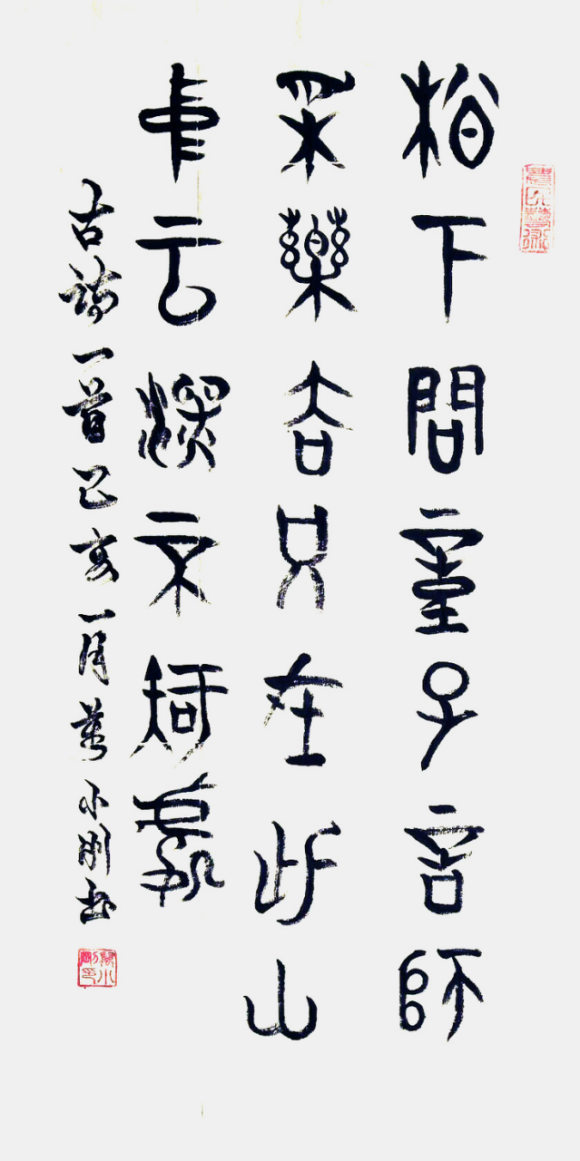 松下問童子言師
采藥去只在此山
中云深不知處
古詩一首己亥一月萬小剛书